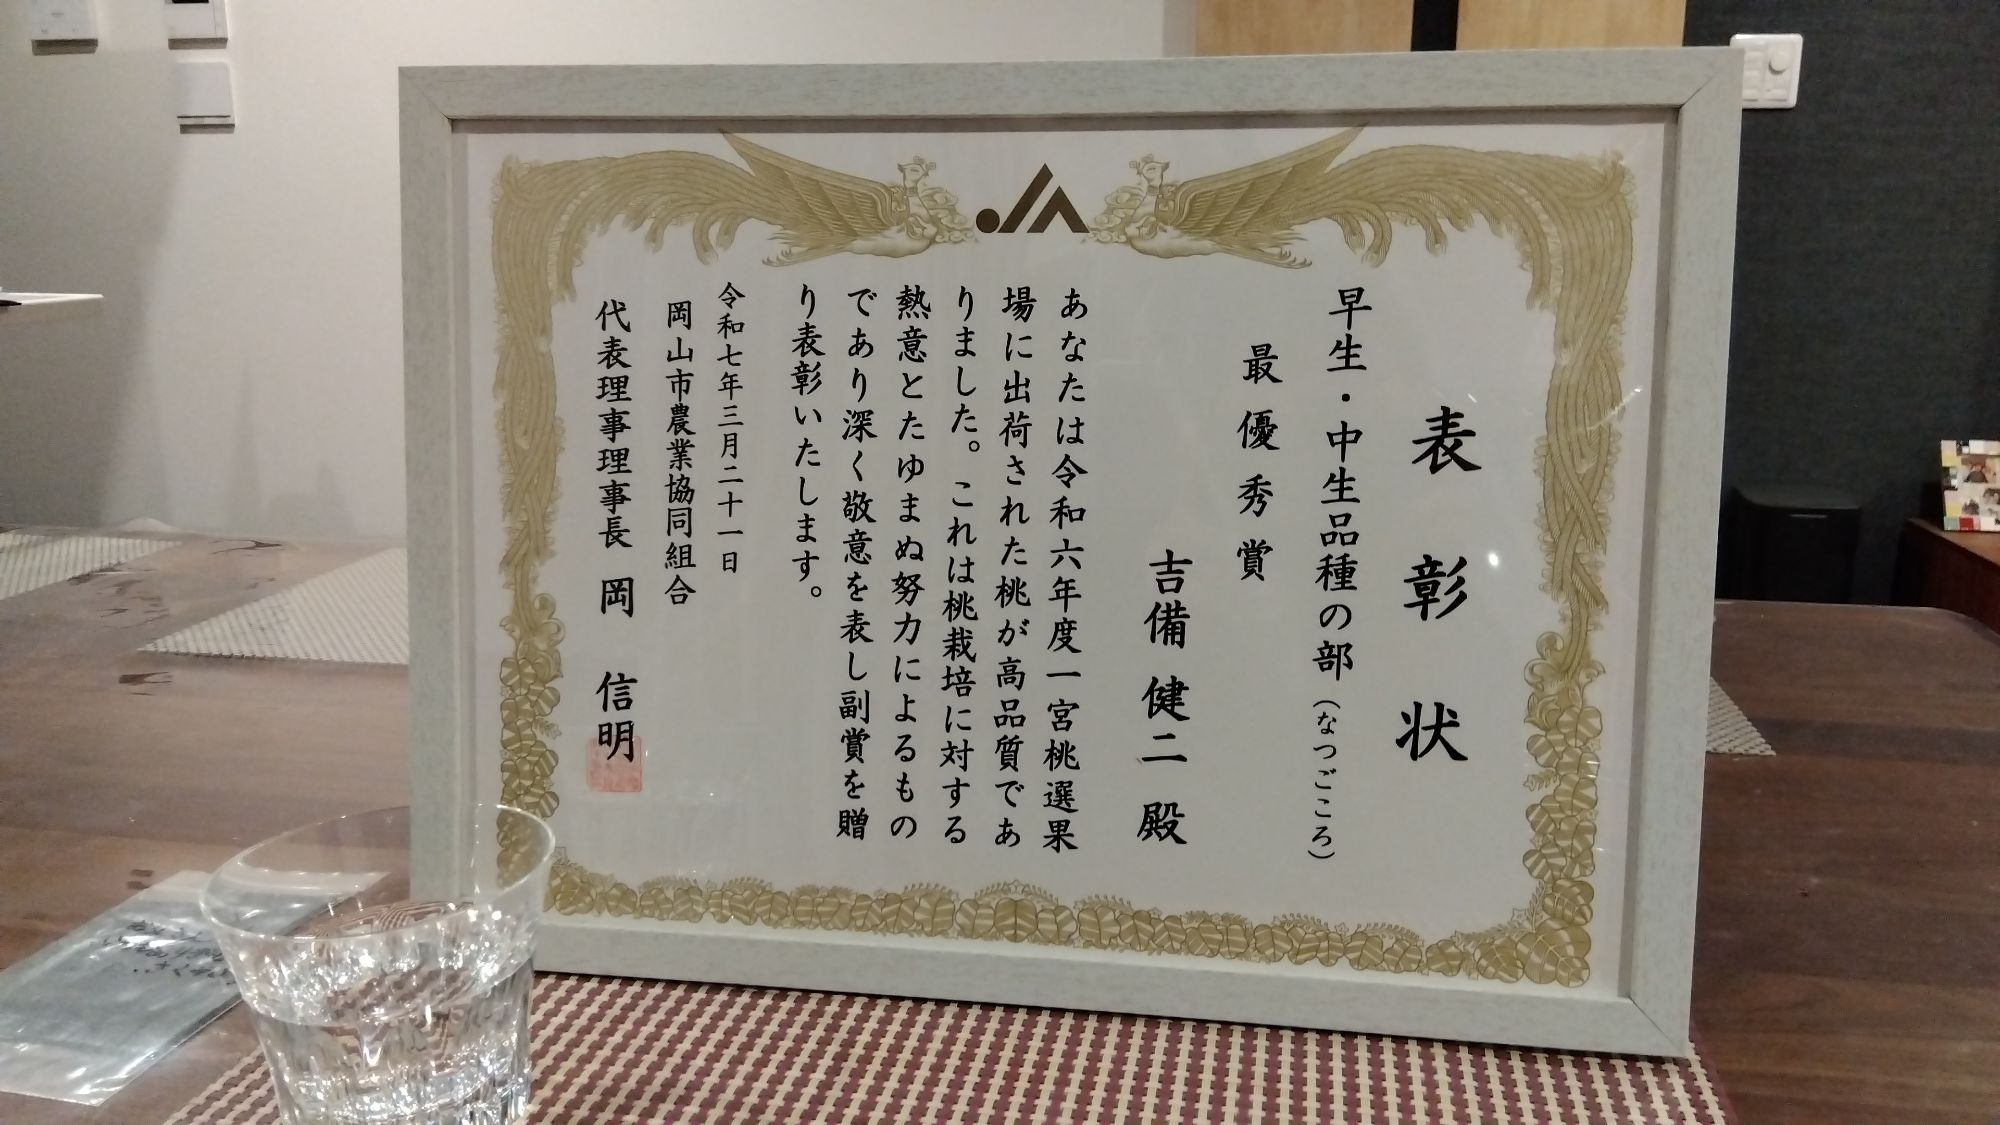 JA
表彰状
早生・中生品種の部(なつごころ)
最優秀賞
吉備 健二 殿
あなたは令和六年度一宮桃選果
場に出荷された桃が高品質であ
りました。これは桃栽培に対する
熱意とたゆまぬ努力によるもの
であり深く敬意を表し副賞を贈
り表彰いたします。
令和七年三月二十一日
岡山市農業協同組合
代表理事理事長 岡 信明